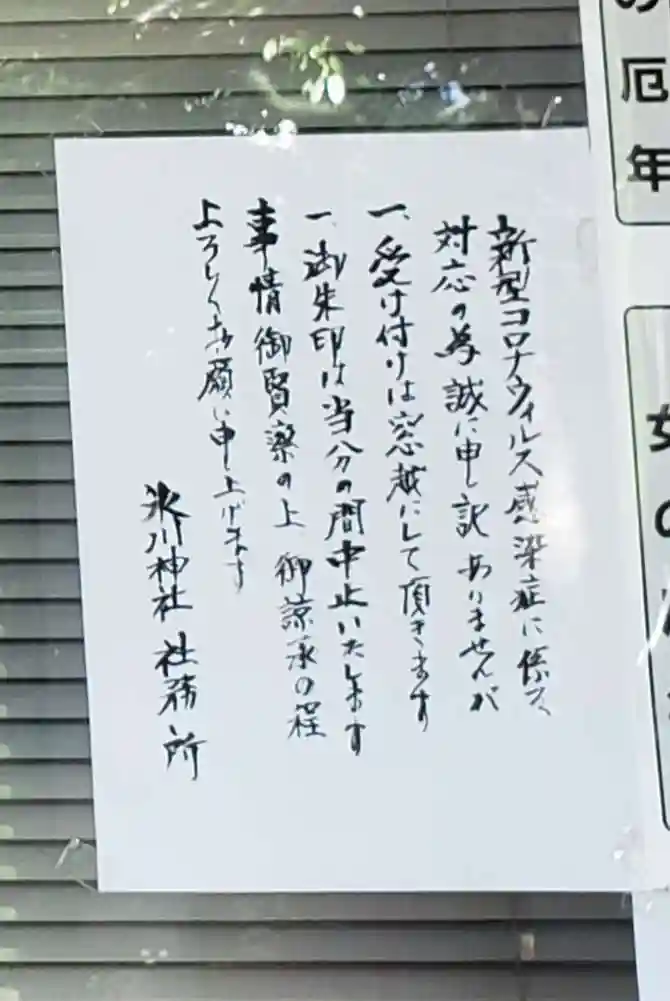 の厄年
女の
新型コロナウィルス感染症に係る
対応の為誠に申し訳ありませんが
一、受け付けは窓越にして頂きます
一、御朱印は当分の間中止いたします
事情御賢察の上 御諒承の程
よろしくお願い申し上げます
氷川神社 社務所